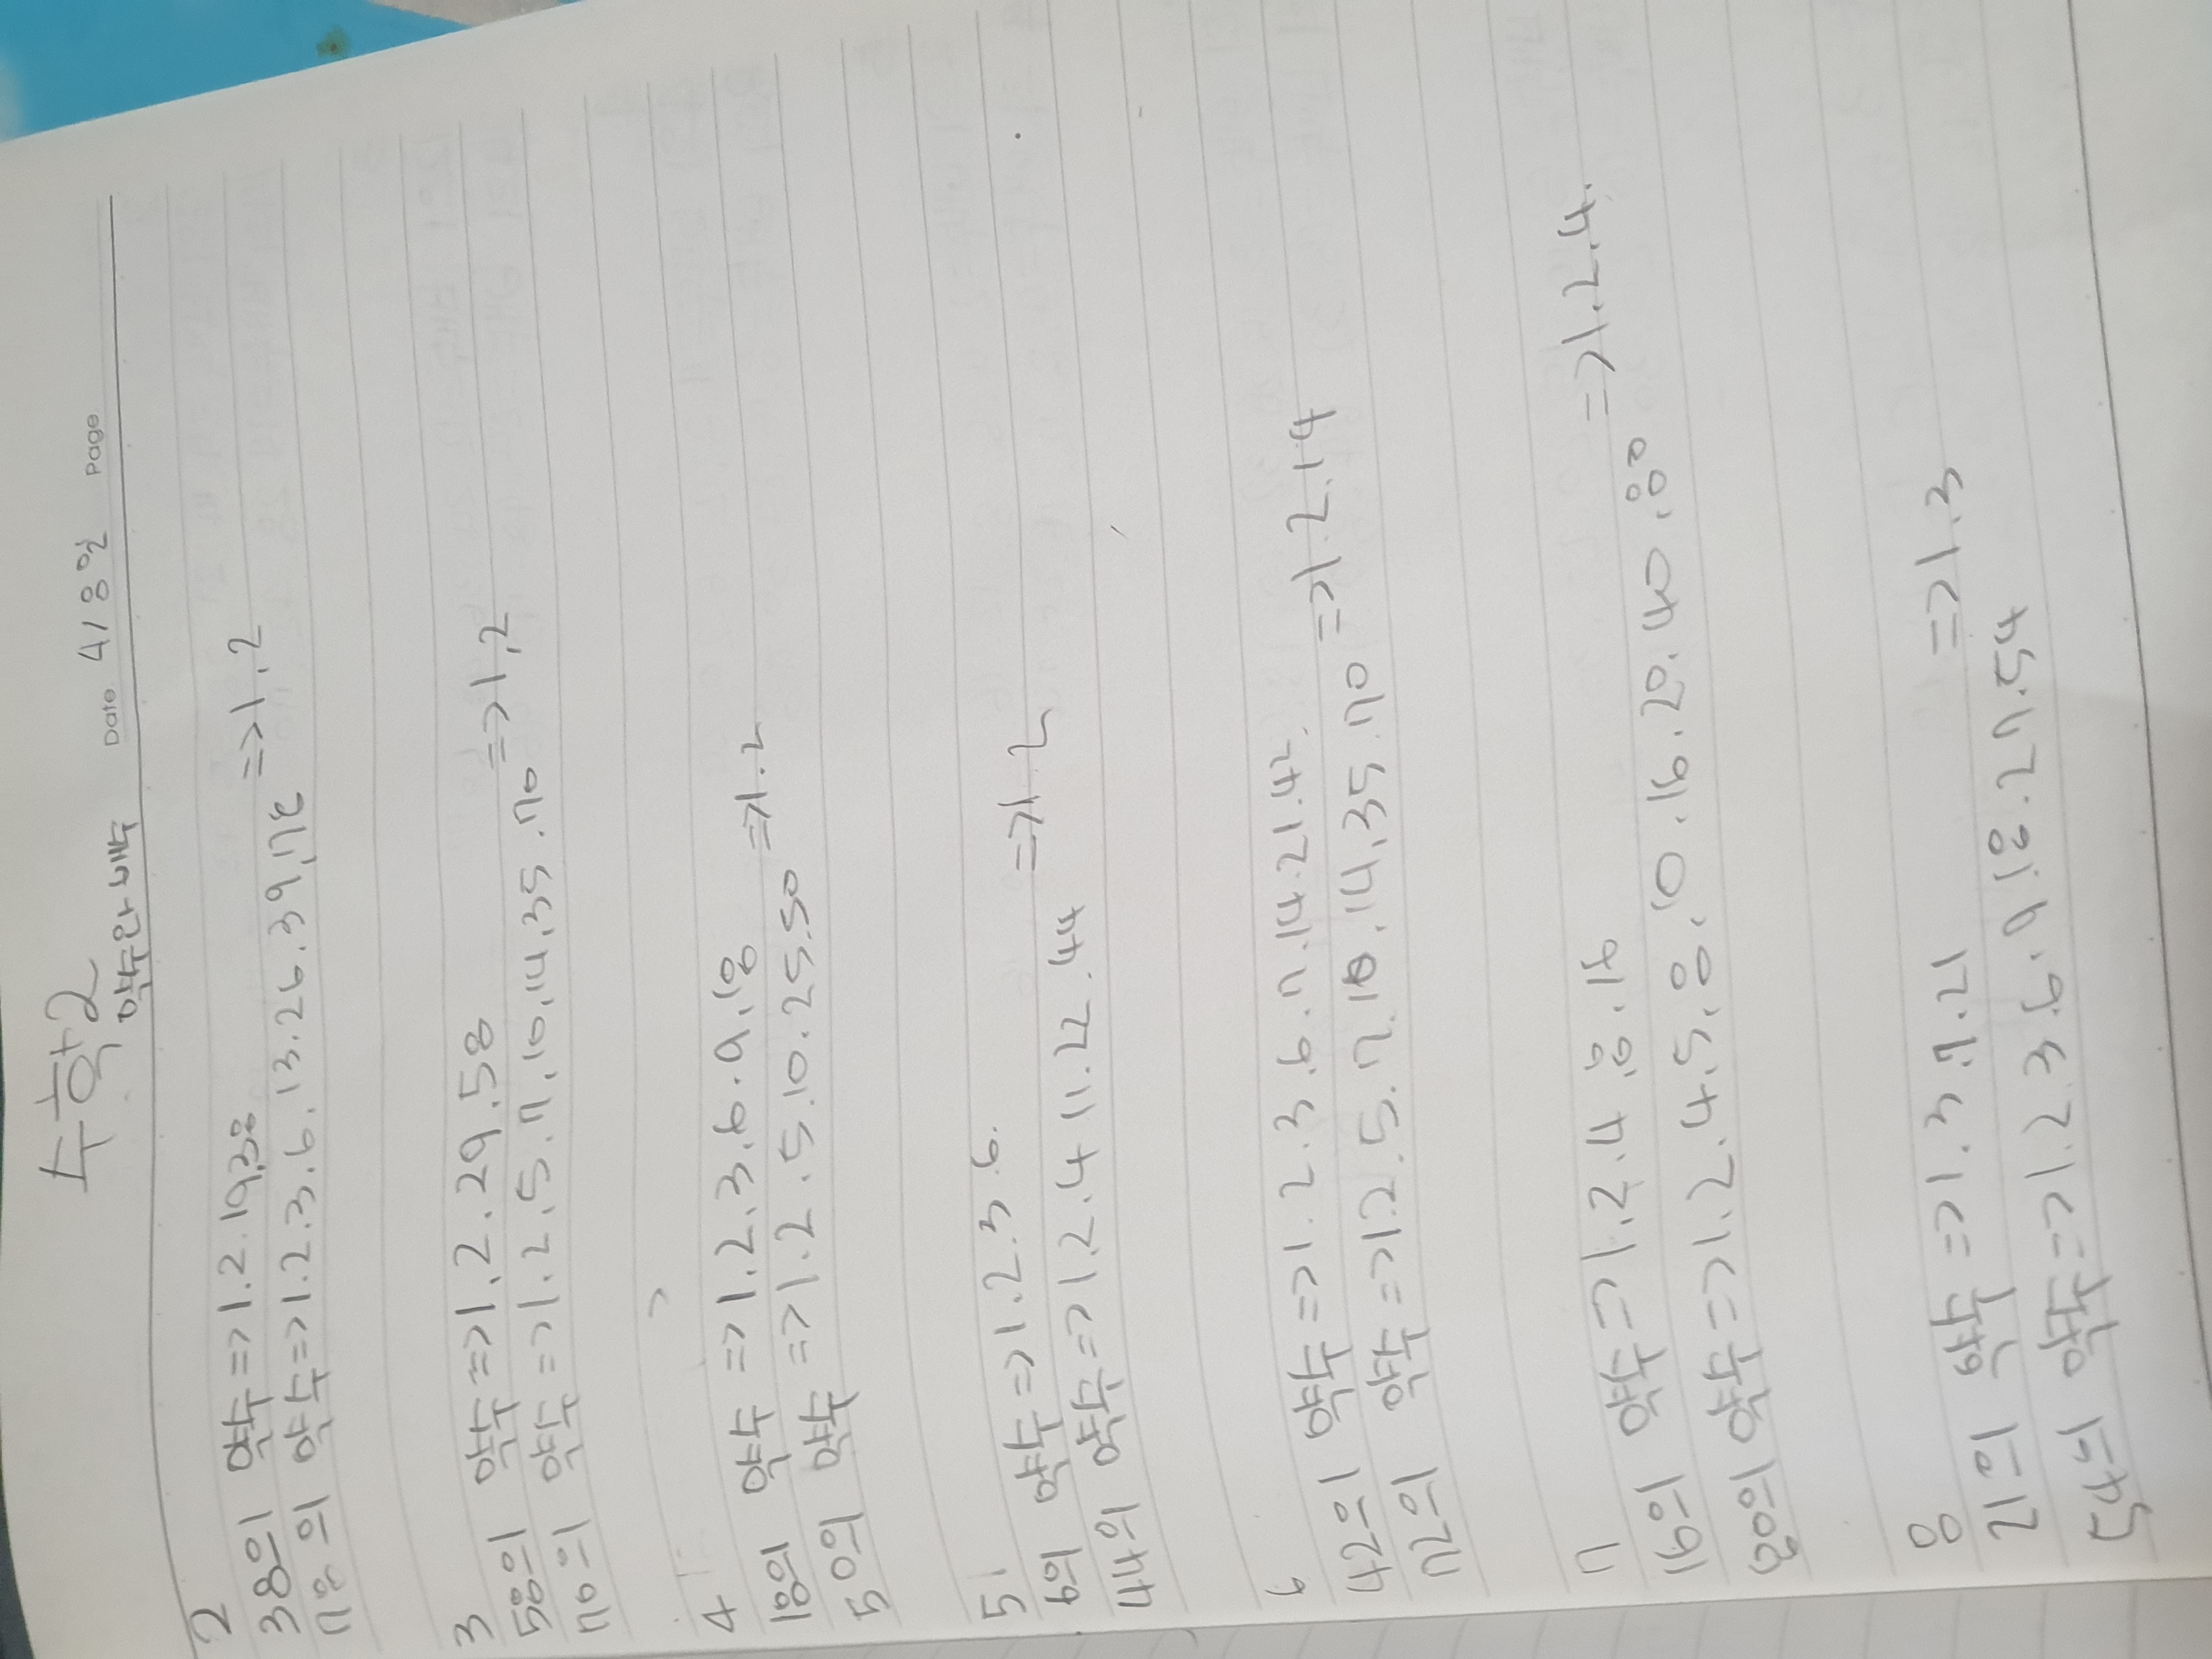 수학2
약수와 배수
Date 4/8일 Page
2
38의 약수=>1.2.19.38
=>1,2
78의 약수=>1.2.3.6.13.26.39,78
3
58의 약수=>1.2.29.58
=>1,2
70의 약수=>1.2.5.7.10.14.35.70
4
18의 약수=>1.2.3.6.9.18
=>1.2
50의 약수=>1.2.5.10.25.50
5
6의 약수=>1.2.3.6.
=>1.2
44의 약수=>1.2.4 11.22.44
6
42의 약수=>1.2.3.6.7.14.21.42.
=>1.2.14
72의 약수=>1.2.5.7.10.14.35.70
7
16의 약수=>1.2.4.8.16
=>1.2.4.
80의 약수=>1.2.4.5.8.10.16.20.40.80
8
21의 약수=>1.3.7.21
=>1.3
54의 약수=>1.2.3.6.9.18.27.54